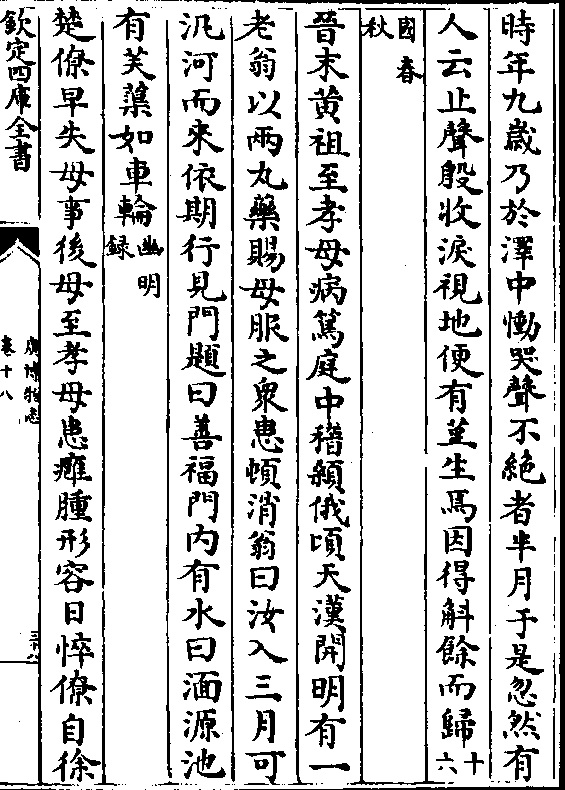 時年九歲乃於澤中慟哭聲不絶者半月于是忽然有
人云止聲殷收淚視地便有堇生焉因得斛餘而歸十六
國春秋
晉末黄祖至孝母病篤庭中稽顙俄頃天漢開明有一
老翁以兩丸藥賜母服之衆患頓消翁曰汝入三月可
汎河而來依期行見門題曰善福門内有水曰湎源池
有芙蕖如車輪幽明錄
楚僚早失母事後母至孝母患癰腫形容日悴僚自徐
欽定四庫全書
廣博物志
卷十八